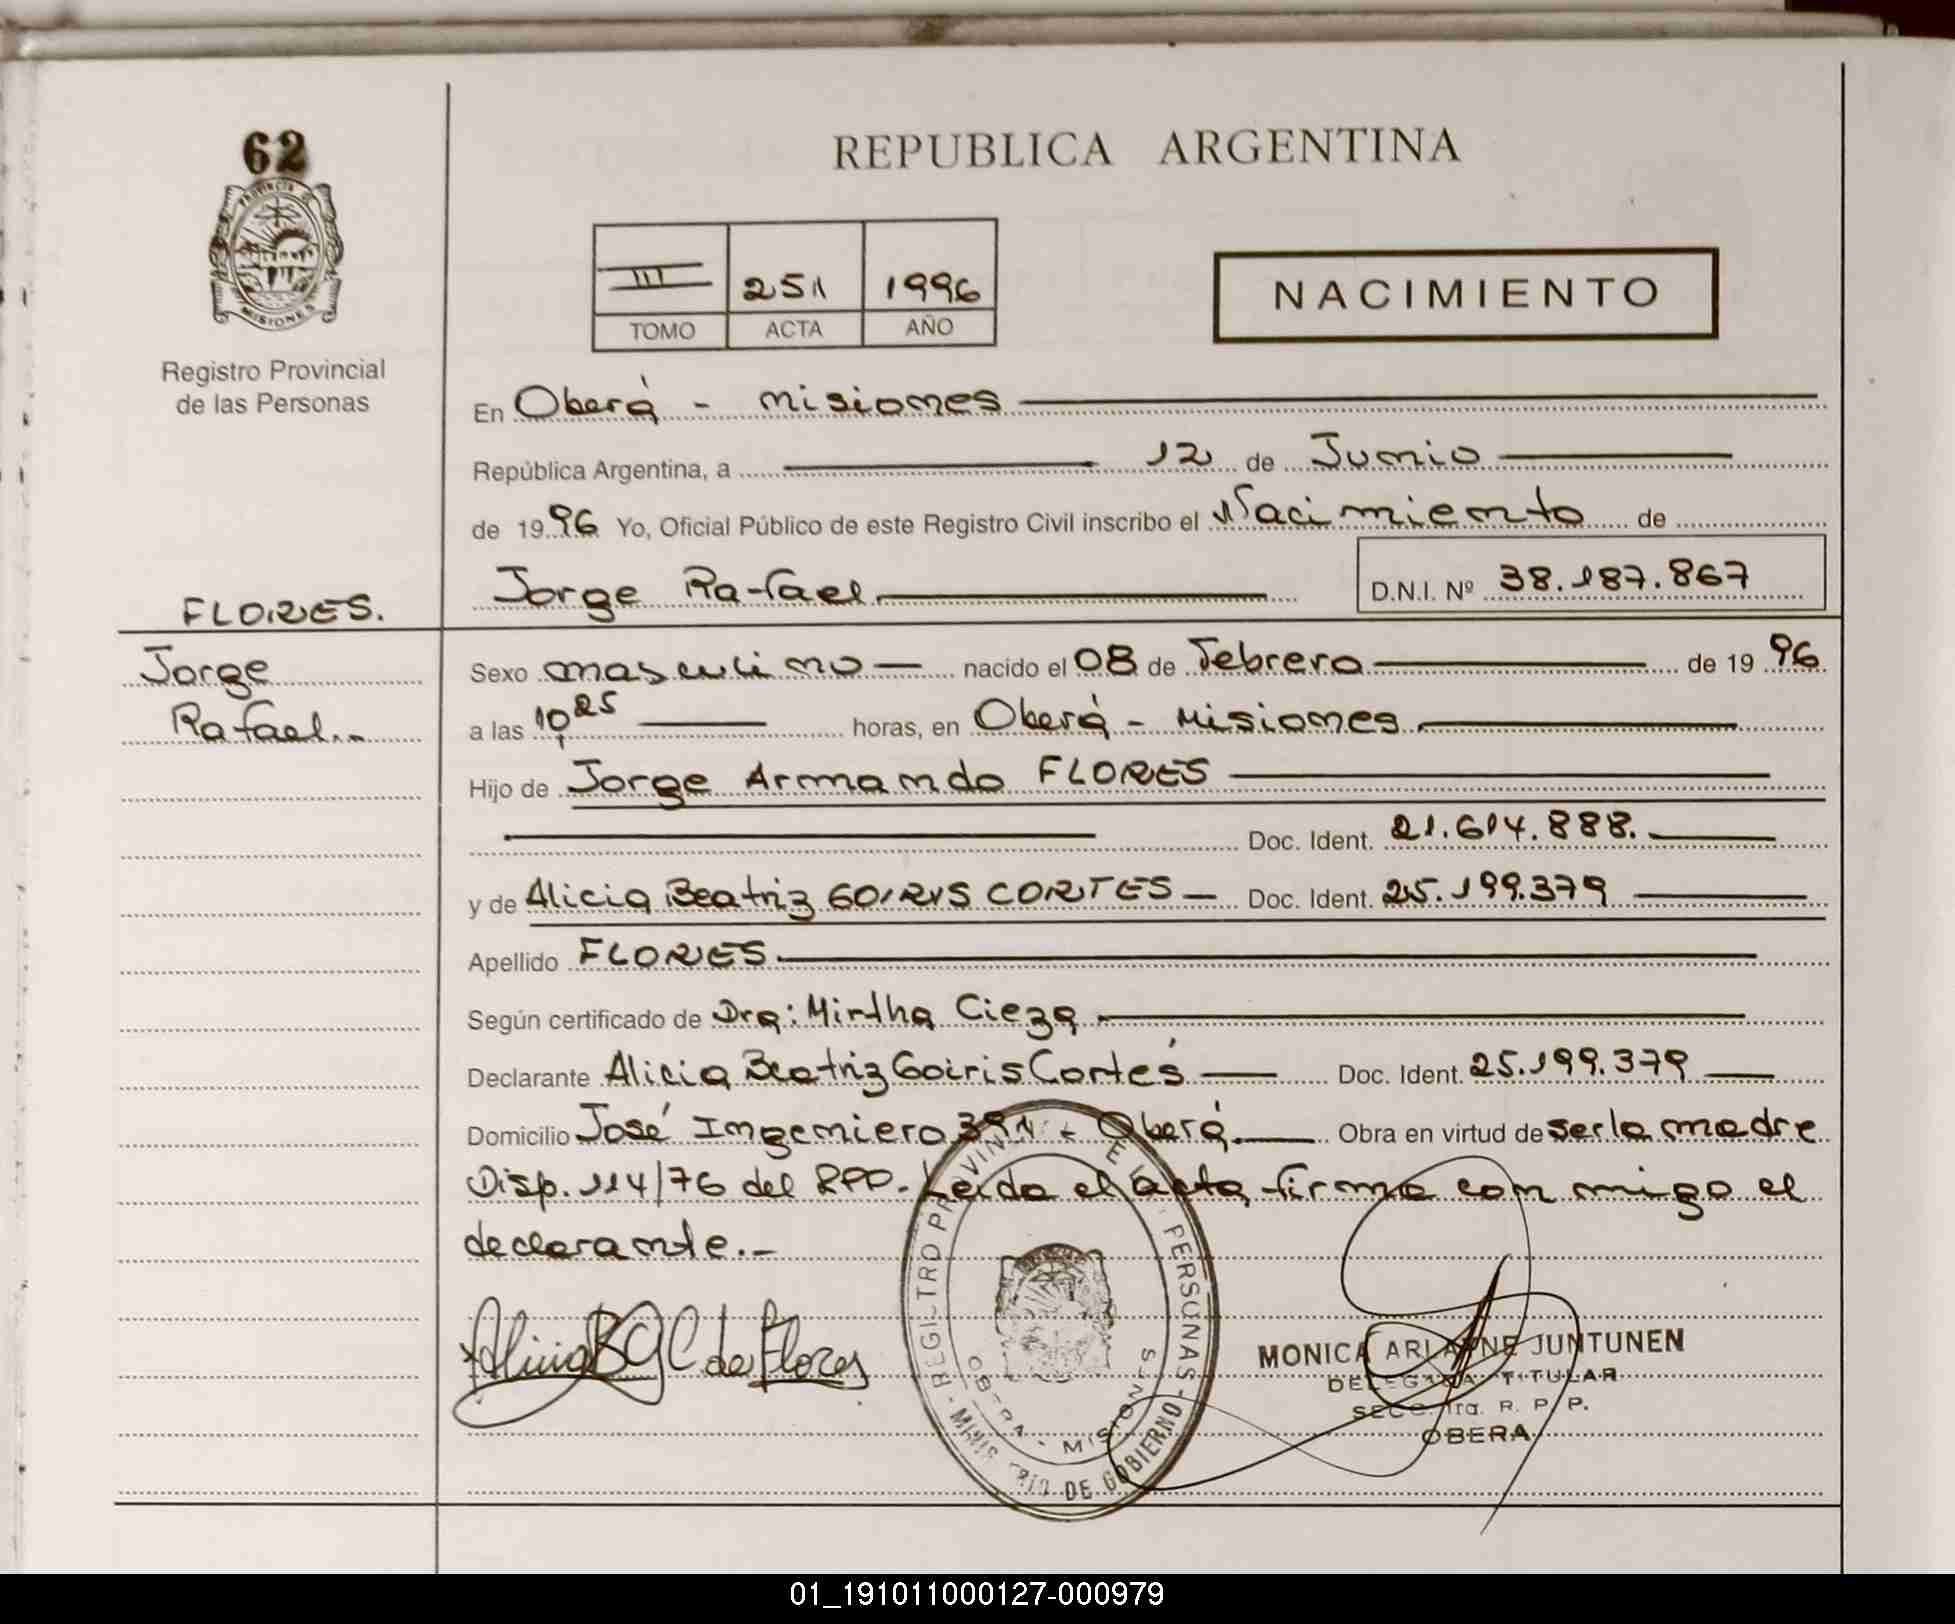 62
PROVINCIA DE
MISIONES
Registro Provincial
de las Personas
REPUBLICA ARGENTINA
III 251 1996
TOMO ACTA AÑO
NACIMIENTO
En Oberá - Misiones
República Argentina, a 12 de Junio
de 1996 Yo, Oficial Público de este Registro Civil inscribo el Nacimiento de
Jorge Rafael D.N.I. Nº 38.187.867
FLORES.
Jorge
Rafael..
Sexo masculino nacido el 08 de Febrero de 1996
a las 10,25 horas, en Oberá - Misiones
Hijo de Jorge Armando FLORES
Doc. Ident. 21.614.888.
y de Alicia Beatriz GOIRIS CORTES Doc. Ident. 25.199.379
Apellido FLORES
Según certificado de Dra: Mirtha Cieza
Declarante Alicia Beatriz Goiris Cortés Doc. Ident. 25.199.379
Domicilio José Ingeniero 391 - Oberá. Obra en virtud de ser la madre
Disp. 114/76 del RPP.- Leída el acta, firma con migo el
declarante.-
Alicia B G C de Flores
REGISTRO PROVINCIAL DE LAS PERSONAS - MINISTERIO DE GOBIERNO -
OBERA - MISIONES
MONICA ARIADNE JUNTUNEN
DELEGADA TITULAR
SECC. 1ra. R. P. P.
OBERA
01_191011000127-000979